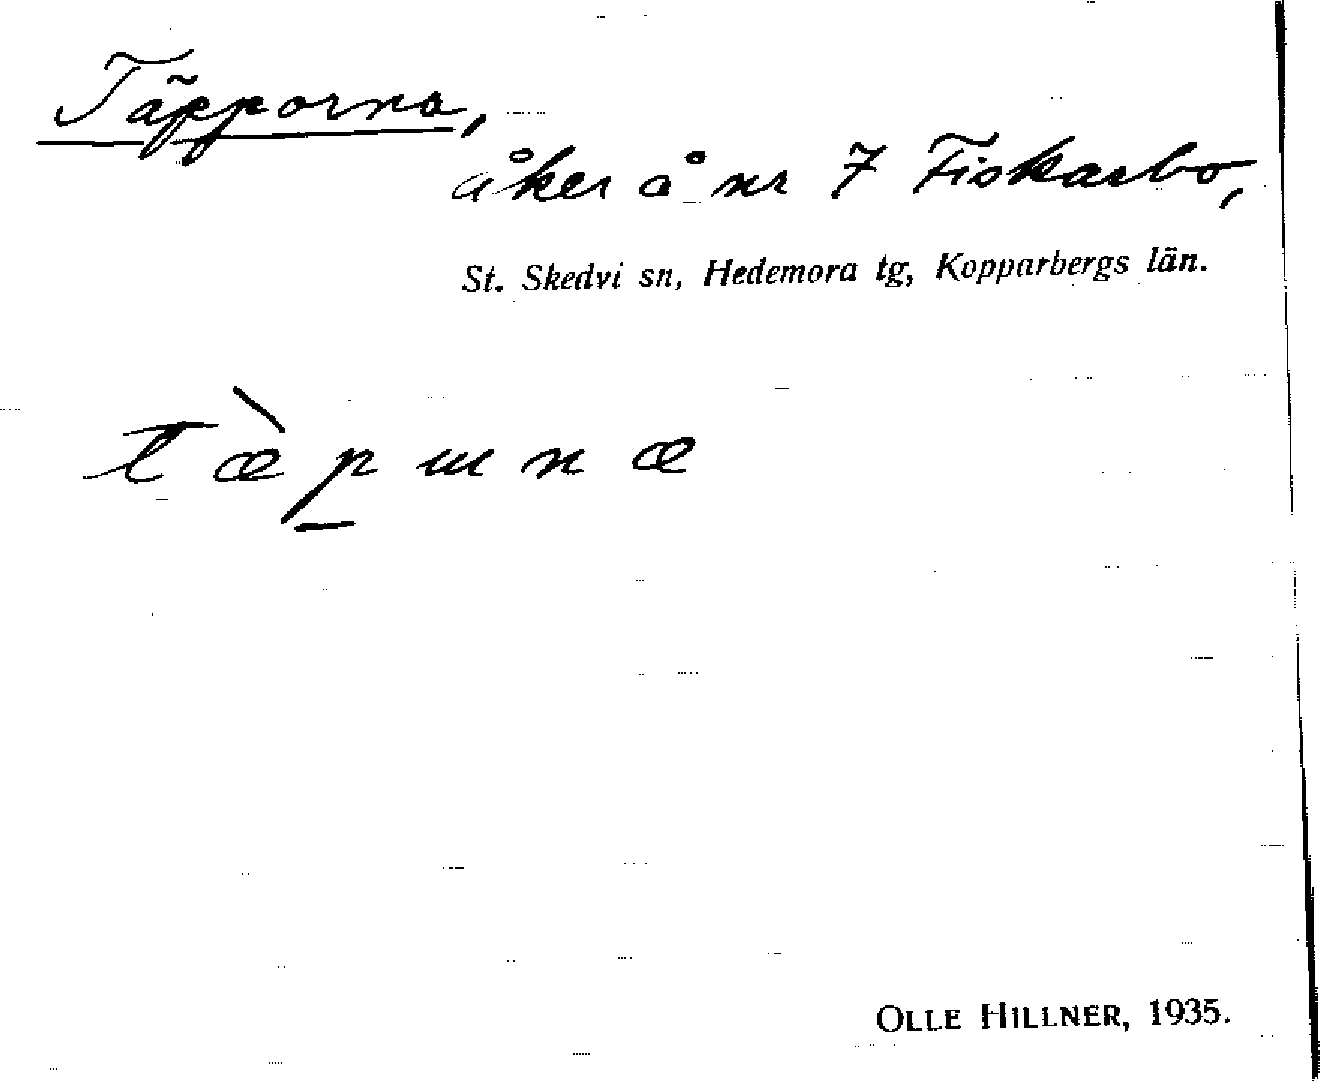 Täpporna,
åker å nr 7 Fiskarbo,
St. Skedvi sn, Hedemora tg, Kopparbergs län.
tæ̀p̠ɯnæ
OLLE HILLNER, 1935.